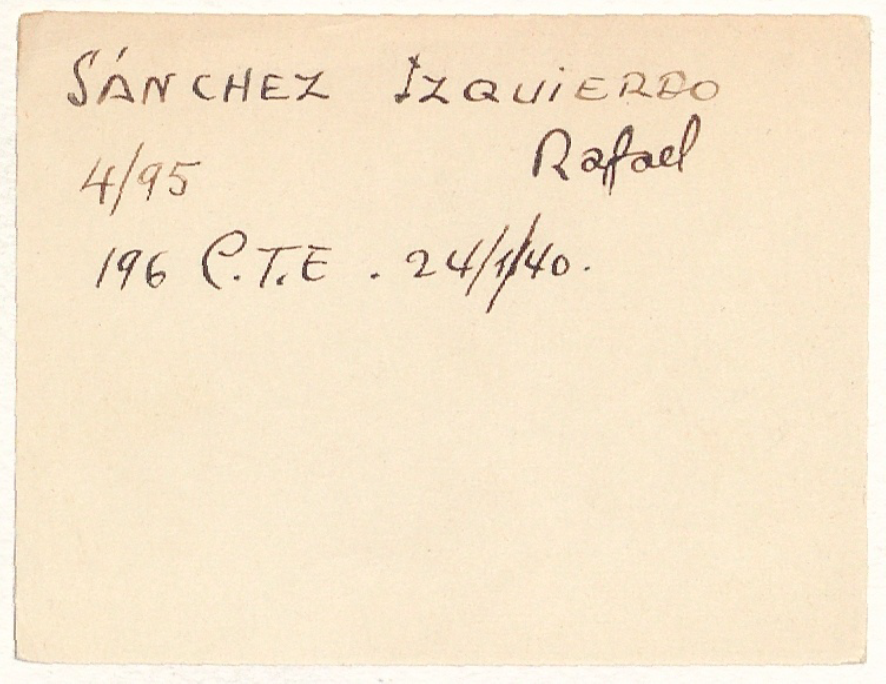 SÁNCHEZ IZQUIERDO
Rafael
4/95
196 C.T.E. 24/1/40.